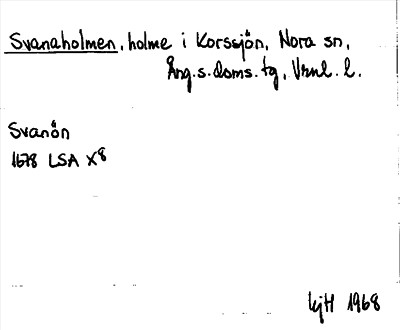 Svanaholmen, holme i Korssjön, Nora sn,
Ång.s.doms.tg, Vrnl. l.
Svanön
1678 LSA X8
LjH 1968